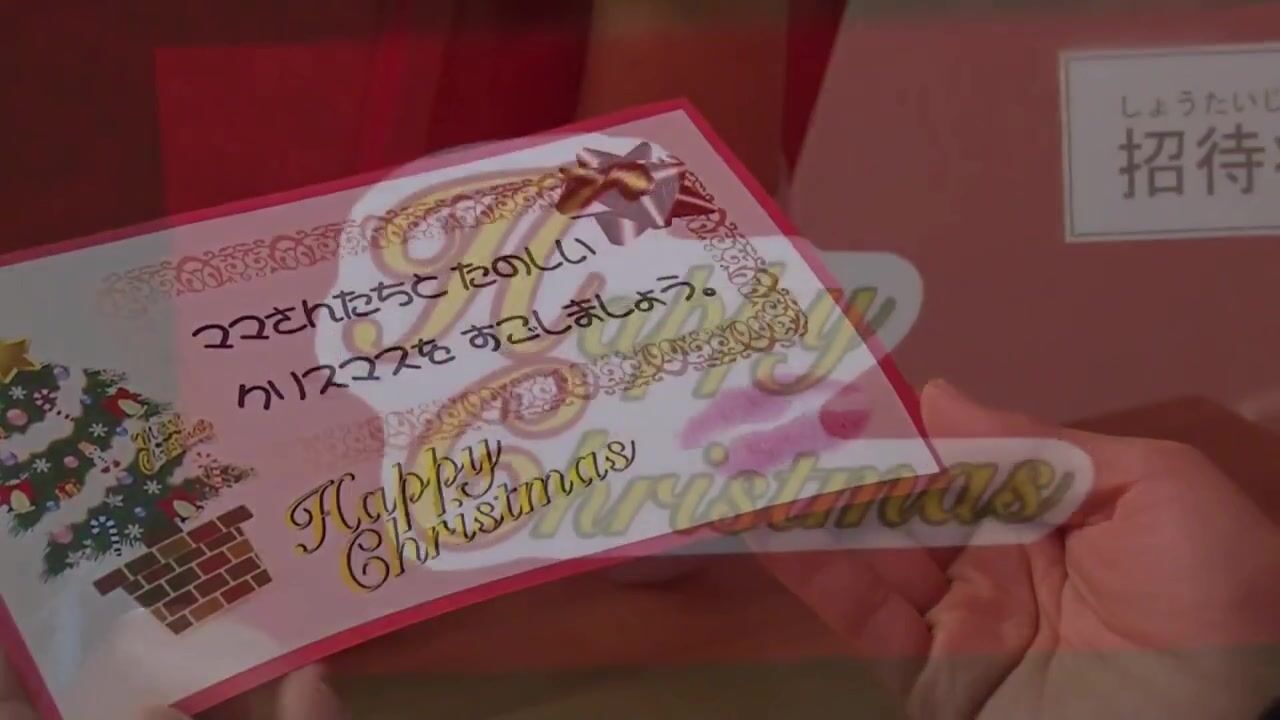 しょうたいじ
招待
ママさんたちと たのしい
クリスマスを すごしましょう。
Happy
Christmas
Happy
Christmas